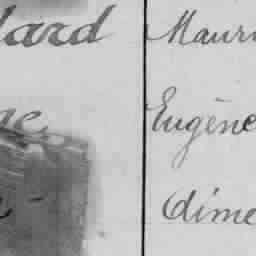 lard Maur
ge Eugène
Aime